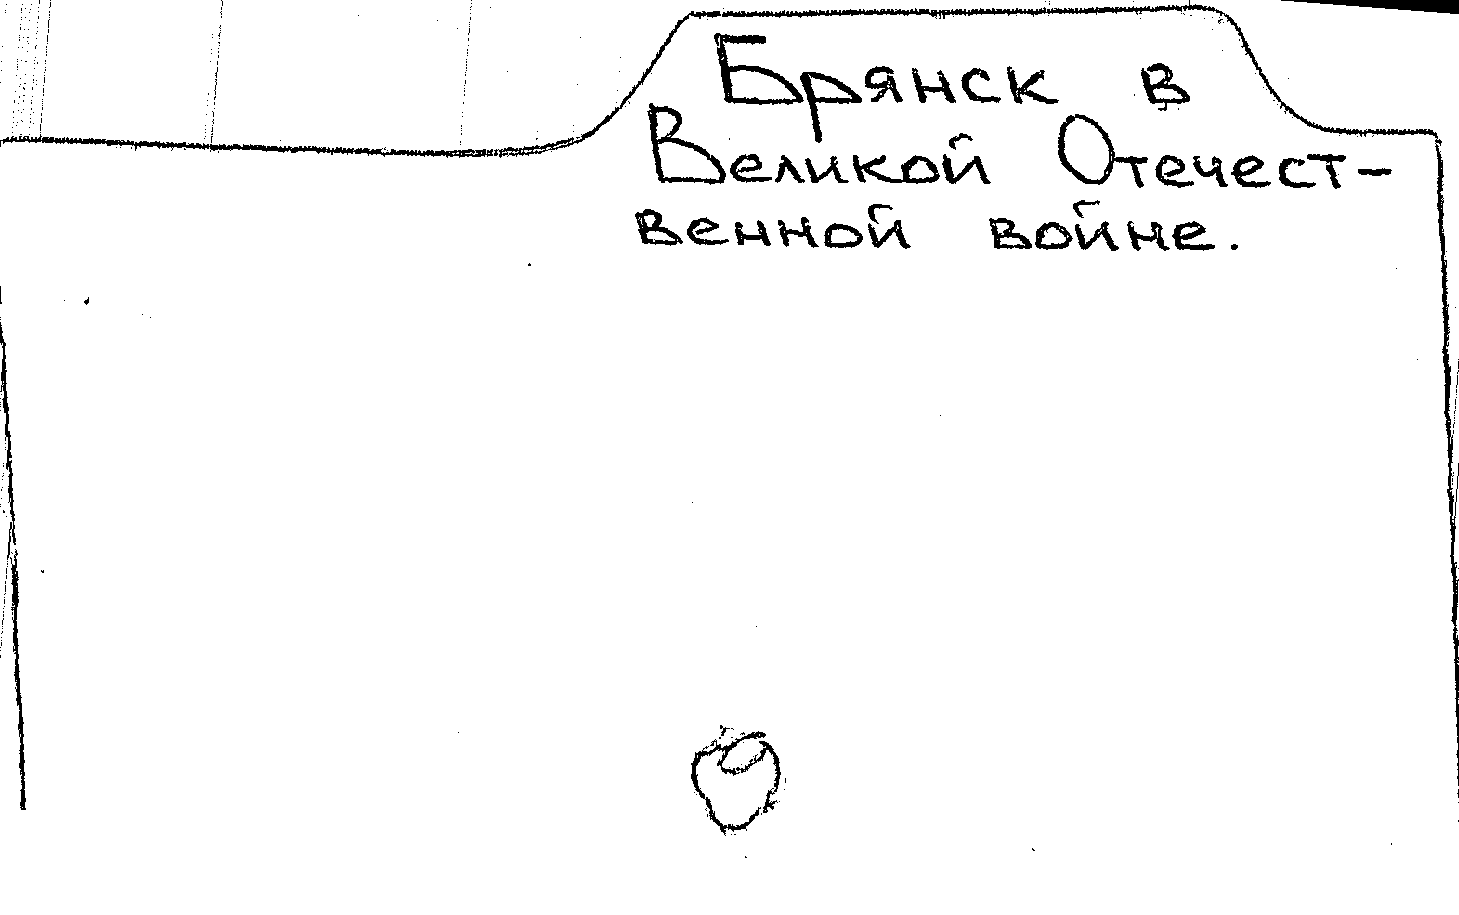 Брянск в
Великой Отечест-
венной войне.